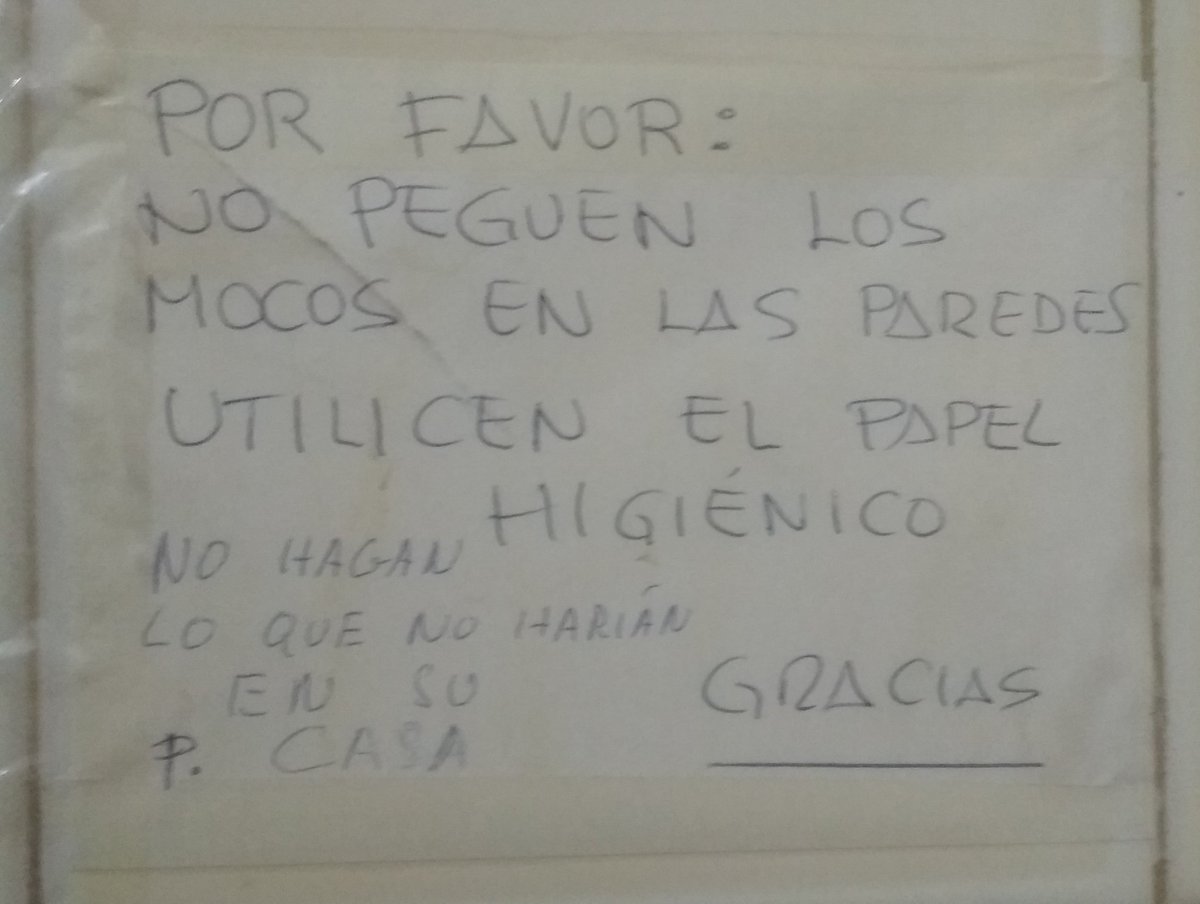 POR FAVOR:
NO PEGUEN LOS
MOCOS EN LAS PAREDES
UTILICEN EL PAPEL
HIGIÉNICO
NO HAGAN
LO QUE NO HARIÁN
EN SU
P. CASA
GRACIAS